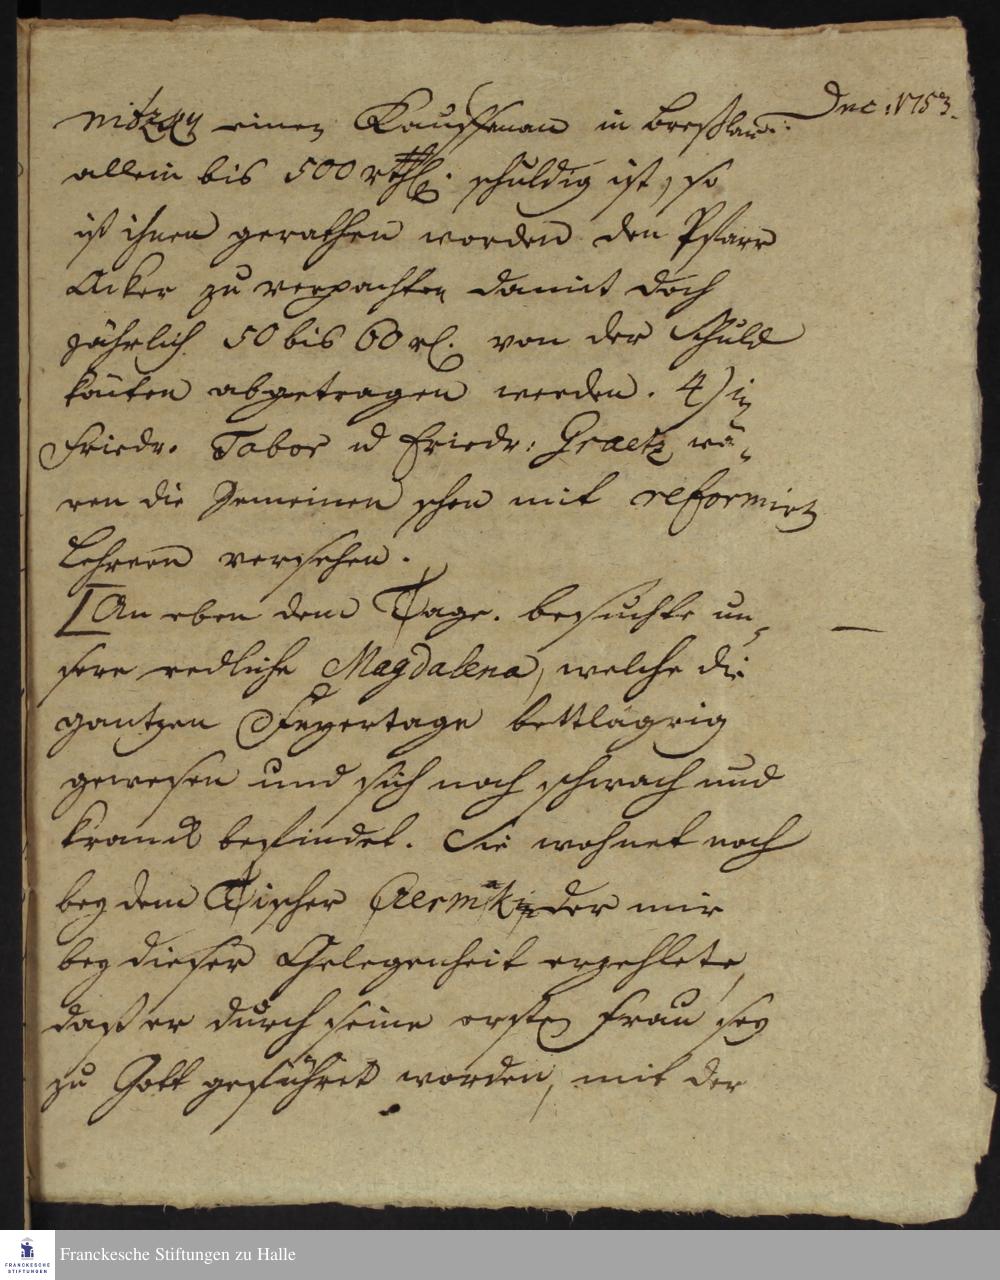 Dec: 1753.
nitzky einen Kauffman in Breßlau
allein bis 500 rthl. schuldig ist, so
ist ihnen gerathen worden den Pfarr
Acker zu verpachten damit doch
jährlich 50 bis 60 rl. von der Schuld
könten abgetragen werden. 4) in
Friedr. Tabor u Friedr: Graetz wä„
ren die Gemeinen schon mit reformirten
Lehrern versehen.
[An eben dem Tage. besuchte un„ —
sere redliche Magdalena, welche die
gantzen Feyertage bettlägrig
gewesen und sich noch schwach und
kranck befindet. Sie wohnet noch
bey dem Tischer der mir
bey dieser Gelegenheit erzehlete,
daß er durch seine erste Frau sey
zu Gott geführet worden, mit der
Franckesche Stiftungen zu Halle
FRANCKESCHE
STIFTUNGEN